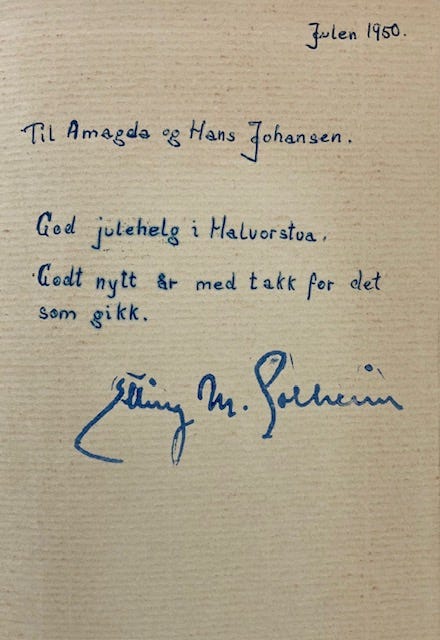 Julen 1950.
Til Amagda og Hans Johansen.
God julehelg i Halvorstua.
Godt nytt år med takk for det
som gikk.
Elling M. Solheim